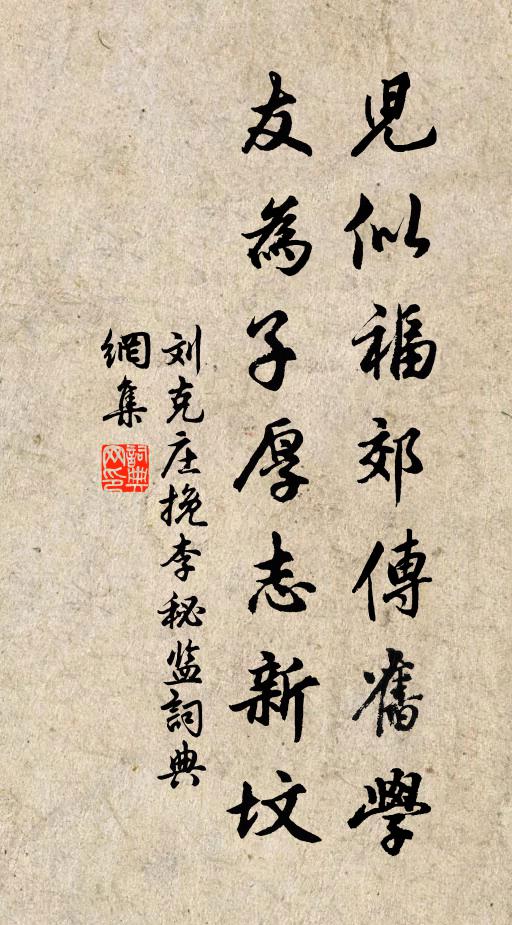 兒似福郊傳舊學
友為子厚志新墳
刘克庄挽李秘监詞典
網集
詞典網印